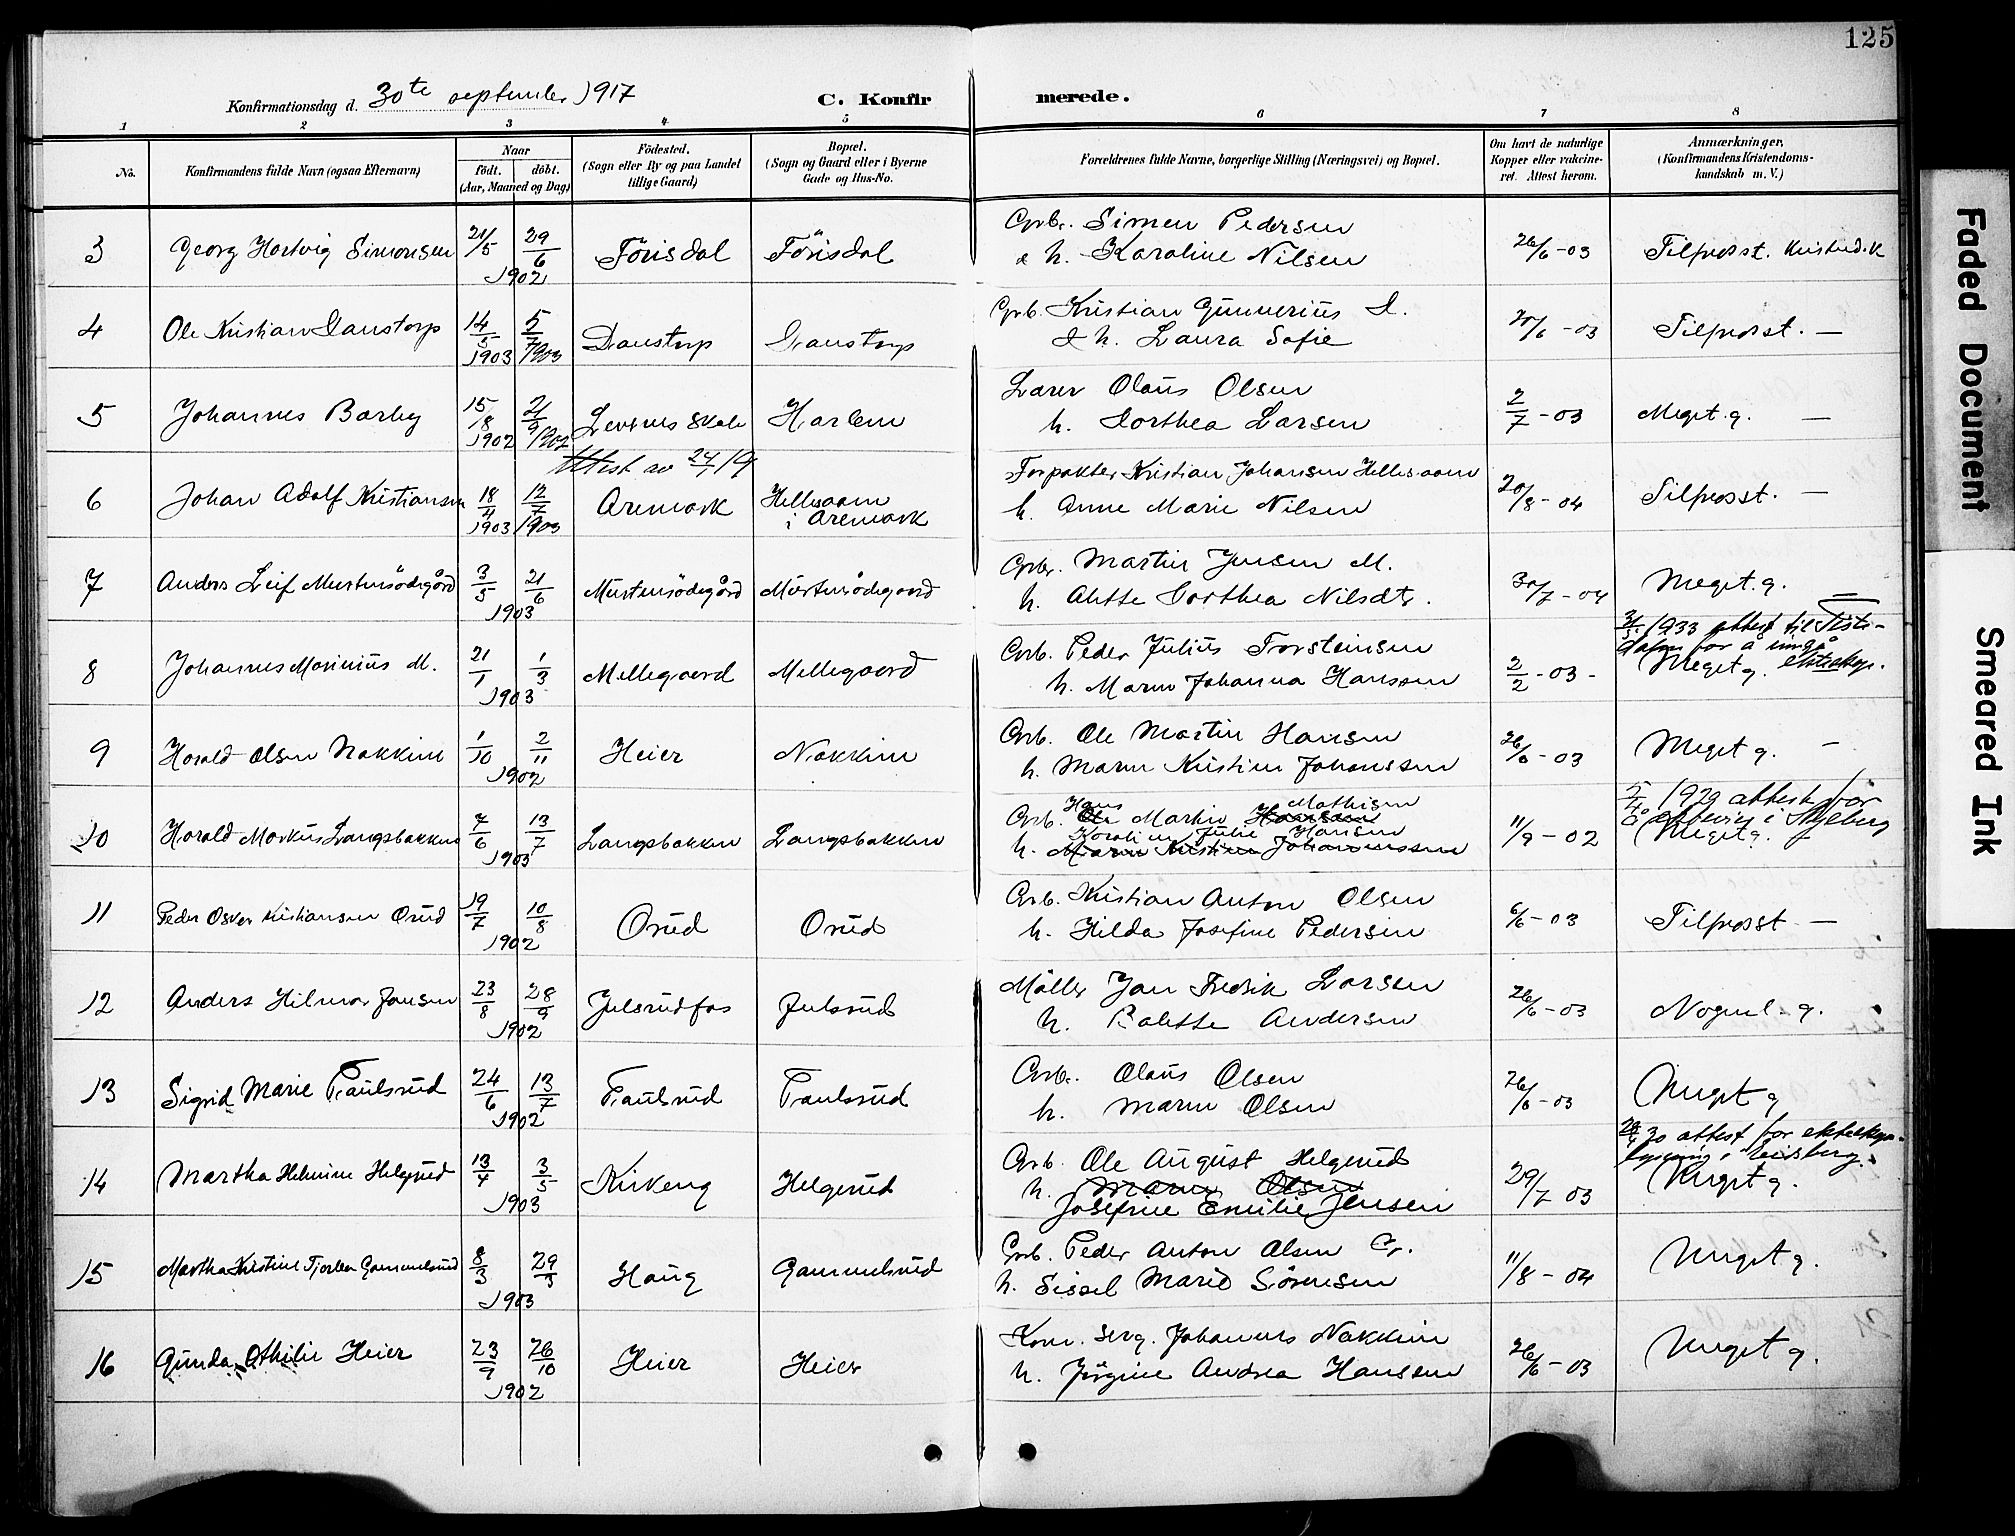 125
Konfirmationsdag d. 30te september 1917
C. Konfirmerede.
1 2 3 4 5 6 7 8
No.
Konfirmandens fulde Navn (ogsaa Efternavn)
Naar
födt. döbt.
(Aar, Maaned og Dag)
Födested.
(Sogn eller By og paa Landet
tillige Gaard)
Bopæl.
(Sogn og Gaard eller i Byerne
Gade og Hus-No.
Forældrenes fulde Navne, borgerlige Stilling (Næringsvei) og Bopæl.
Om havt de naturlige
Kopper eller vakcine-
ret. Attest herom.
Anmærkninger,
(Konfirmandens Kristendoms-
kundskab m. V.)
3 Georg Hartvig Simonsen 21/5 29/6 1902 Förisdal Förisdal
Grbr. Simen Pedersen
& h. Karoline Nilsen
26/6-03 Tilfredsst. Kristend.k
4 Ole Kristian Danstorp 14/5 1903 5/7 1903 Danstorp Danstorp
Grb. Kristian Gunnerius D.
& h. Laura Sofie
20/6-03 Tilfredsst. —
5 Johannes Barby 15/8 1902 21/9 1902 Levernes skole Harlem
Lærer Olaus Olsen
h. Dorthea Larsen
2/7-03 Meget.g. —
Attest av 24/1 19
6 Johan Adolf Kristiansen 18/4 1903 12/7 1903 Aremark Hellesaaen
i Aremark
Forpakter Kristian Johansen Hellesaaen
h. Anne Marie Nilsen
20/8-04 Tilfredsst. —
7 Anders Leif Murtensödegård 3/5 21/6 1903 Murtensödegård Murtensödegaard
Grbr. Martin Jensen M.
h. Alette Dorthea Nilsdtr.
30/7-04 Meget.g. —
8 Johannes Marinius M. 21/1 1/3 1903 Mellegaard Mellegaard
Grb. Peder Julius Torsteinsen
h. Maren Johanna Hanssen
2/2-03-
31/5 1933 attest til Tiste-
dalen for å inngå
Meget g. ekteskap.
9 Harald Olsen Nakkim 1/10 2/11 1902 Heier Nakkim
Grb. Ole Martin Hansen
h. Maren Kristine Johanssen
26/6-03 Meget g. —
10 Harald Markus Langsbakken 7/6 13/7 1903 Langsbakken Langsbakken
Hans Mathisen
Grb. Ole Martin Hanssen
Karoline Julie Hansen
h. Maren Kristine Johannessen
11/9-02
5/4 1929 attest for
Meget g.
11 Peder Oskar Kristiansen Orud 19/7 10/8 1902 Orud Orud
Grb. Kristian Anton Olsen
h. Hilda Josefine Pedersen
6/6-03 Tilfredsst —
12 Anders Hilmar Jansen 23/8 28/9 1902 Julsrudfos Julsrud
Möller Jan Fredrik Larsen
h. Balette Andersen
26/6-03 Nogenl. g.
13 Sigrid Marie Paulsrud 24/6 13/7 1902 Paulsrud Paulsrud
Grb. Olaus Olsen
h. Maren Olsen
26/6-03 Meget g
14 Martha Helmine Helgerud 13/4 3/5 1903 Kirkeng Helgerud
Grb. Ole August Helgerud
h. Maren Olsen
Josefine Emilie Jensen
29/7 03
30 attest for ekteskaps-
lysning i
Meget g.
15 Martha Kristine Gammelsrud 8/3 29/3 1903 Haug Gammelsrud
Grb. Peder Anton Olsen G.
h. Sissel Marie Sörensen
11/8-04 Meget g.
16 Gunda Othilie Heier 23/9 26/10 1902 Heier Heier
Korn. serg. Johannes Nakkim
h. Jörgine Andrea Hanssen
26/6-03 Meget g.
Faded Document
Smeared Ink